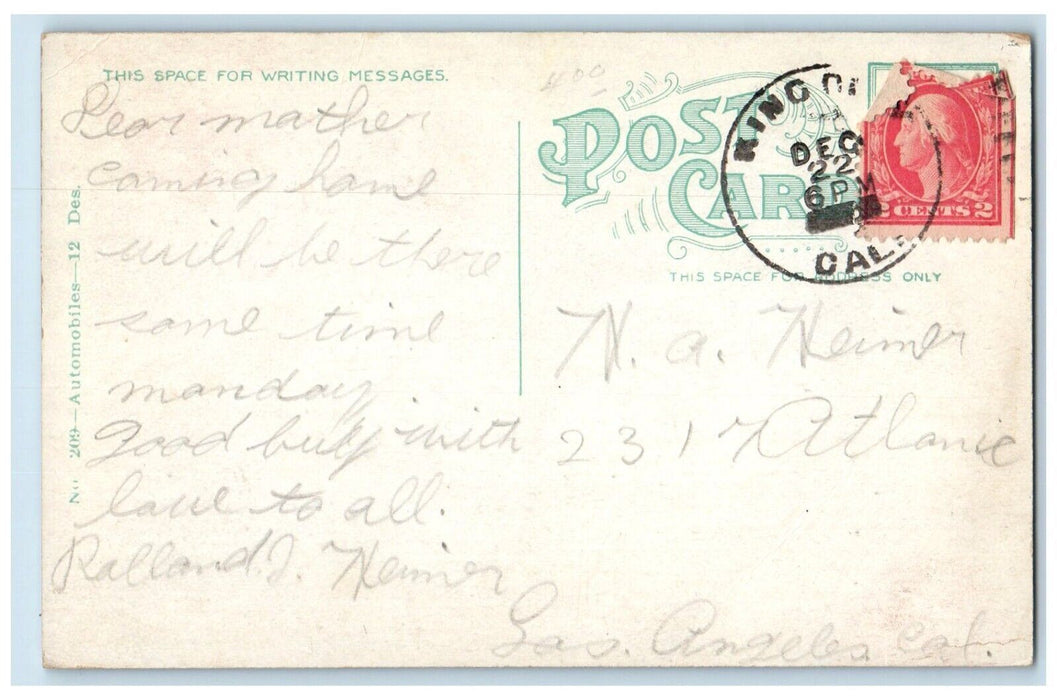 THIS SPACE FOR WRITING MESSAGES.
Dear mather
coming home
will be there
some time
manday.
Good buy with
love to all.
Rolland. J. Heimer
No. 209—Automobiles—12 Des.
4 00
POST CARD
KING
CAL.
DEC
22
6 PM
2 CENTS 2
THIS SPACE FOR ADDRESS ONLY
H. a. Heimer
2317 Atlanic
Los. Angeles. Cal.